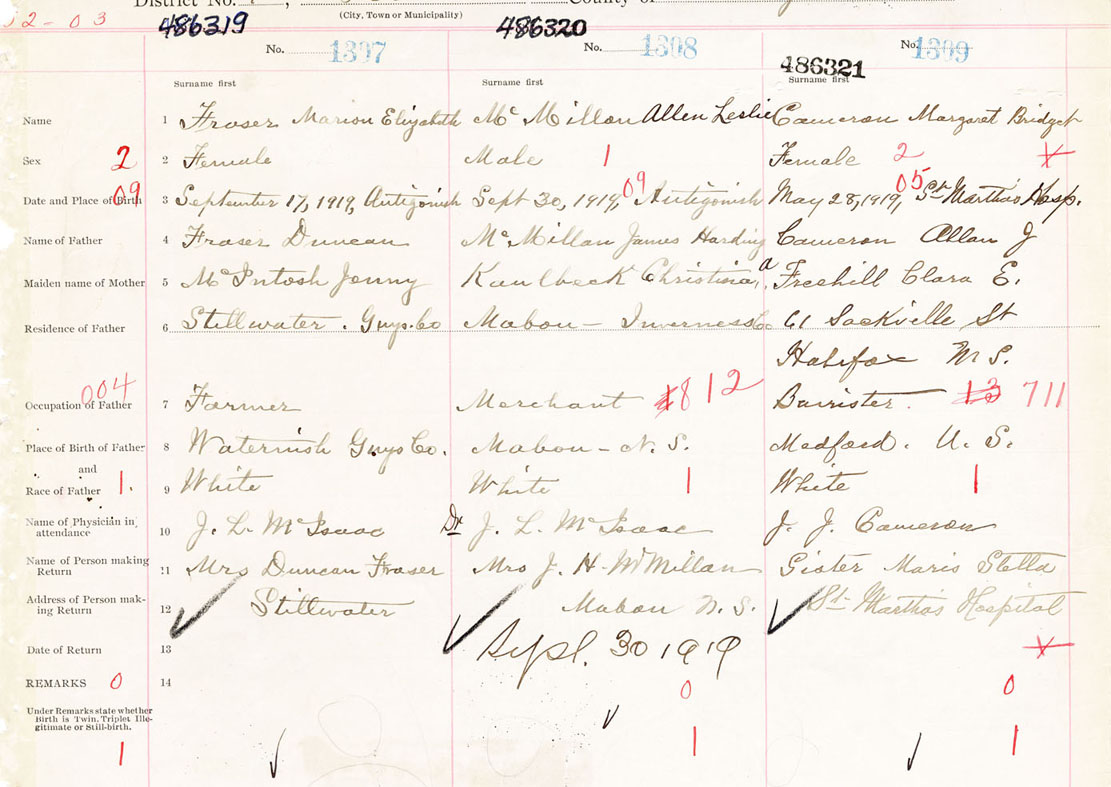 District No. County of
(City, Town or Municipality)
02-03
486319 486320 486321
No. 1307 No. 1308 No. 1309
Surname first Surname first Surname first
Name 1 Fraser Marion Elizabeth McMillan Allen Leslie Cameron Margaret Bridget
Sex 2 2 Female Male 1 Female 2
Date and Place of Birth 09 3 September 17, 1919, Antigonish Sept 30, 1919, 09 Antigonish May 28, 1919, 05 St Martha's Hosp.
Name of Father 4 Fraser Duncan McMillan James Harding Cameron Allan J
Maiden name of Mother 5 McIntosh Jenny Kaulbeck Christina, a Freehill Clara E.
Residence of Father 6 Stillwater. Guys. Co Mabou - Inverness Co 61 Sackville St
Halifax N S.
004
Occupation of Father 7 Farmer Merchant 812 Barrister. 13 711
Place of Birth of Father 8 Waternish Guys Co. Mabou - N. S. Medford. U. S.
and
Race of Father 1. 9 White White 1 White 1
Name of Physician in attendance 10 J. L. McIsaac Dr J. L. McIsaac J. J. Cameron
Name of Person making Return 11 Mrs Duncan Fraser Mrs J. H. McMillan Sister Maris Stella
Address of Person making Return 12 Stillwater Mabou N. S. St. Martha's Hospital
Date of Return 13 Sept. 30 1919
REMARKS 0 14 0 0
Under Remarks state whether
Birth is Twin, Triplet Ille-
gitimate or Still-birth.
1 1 1